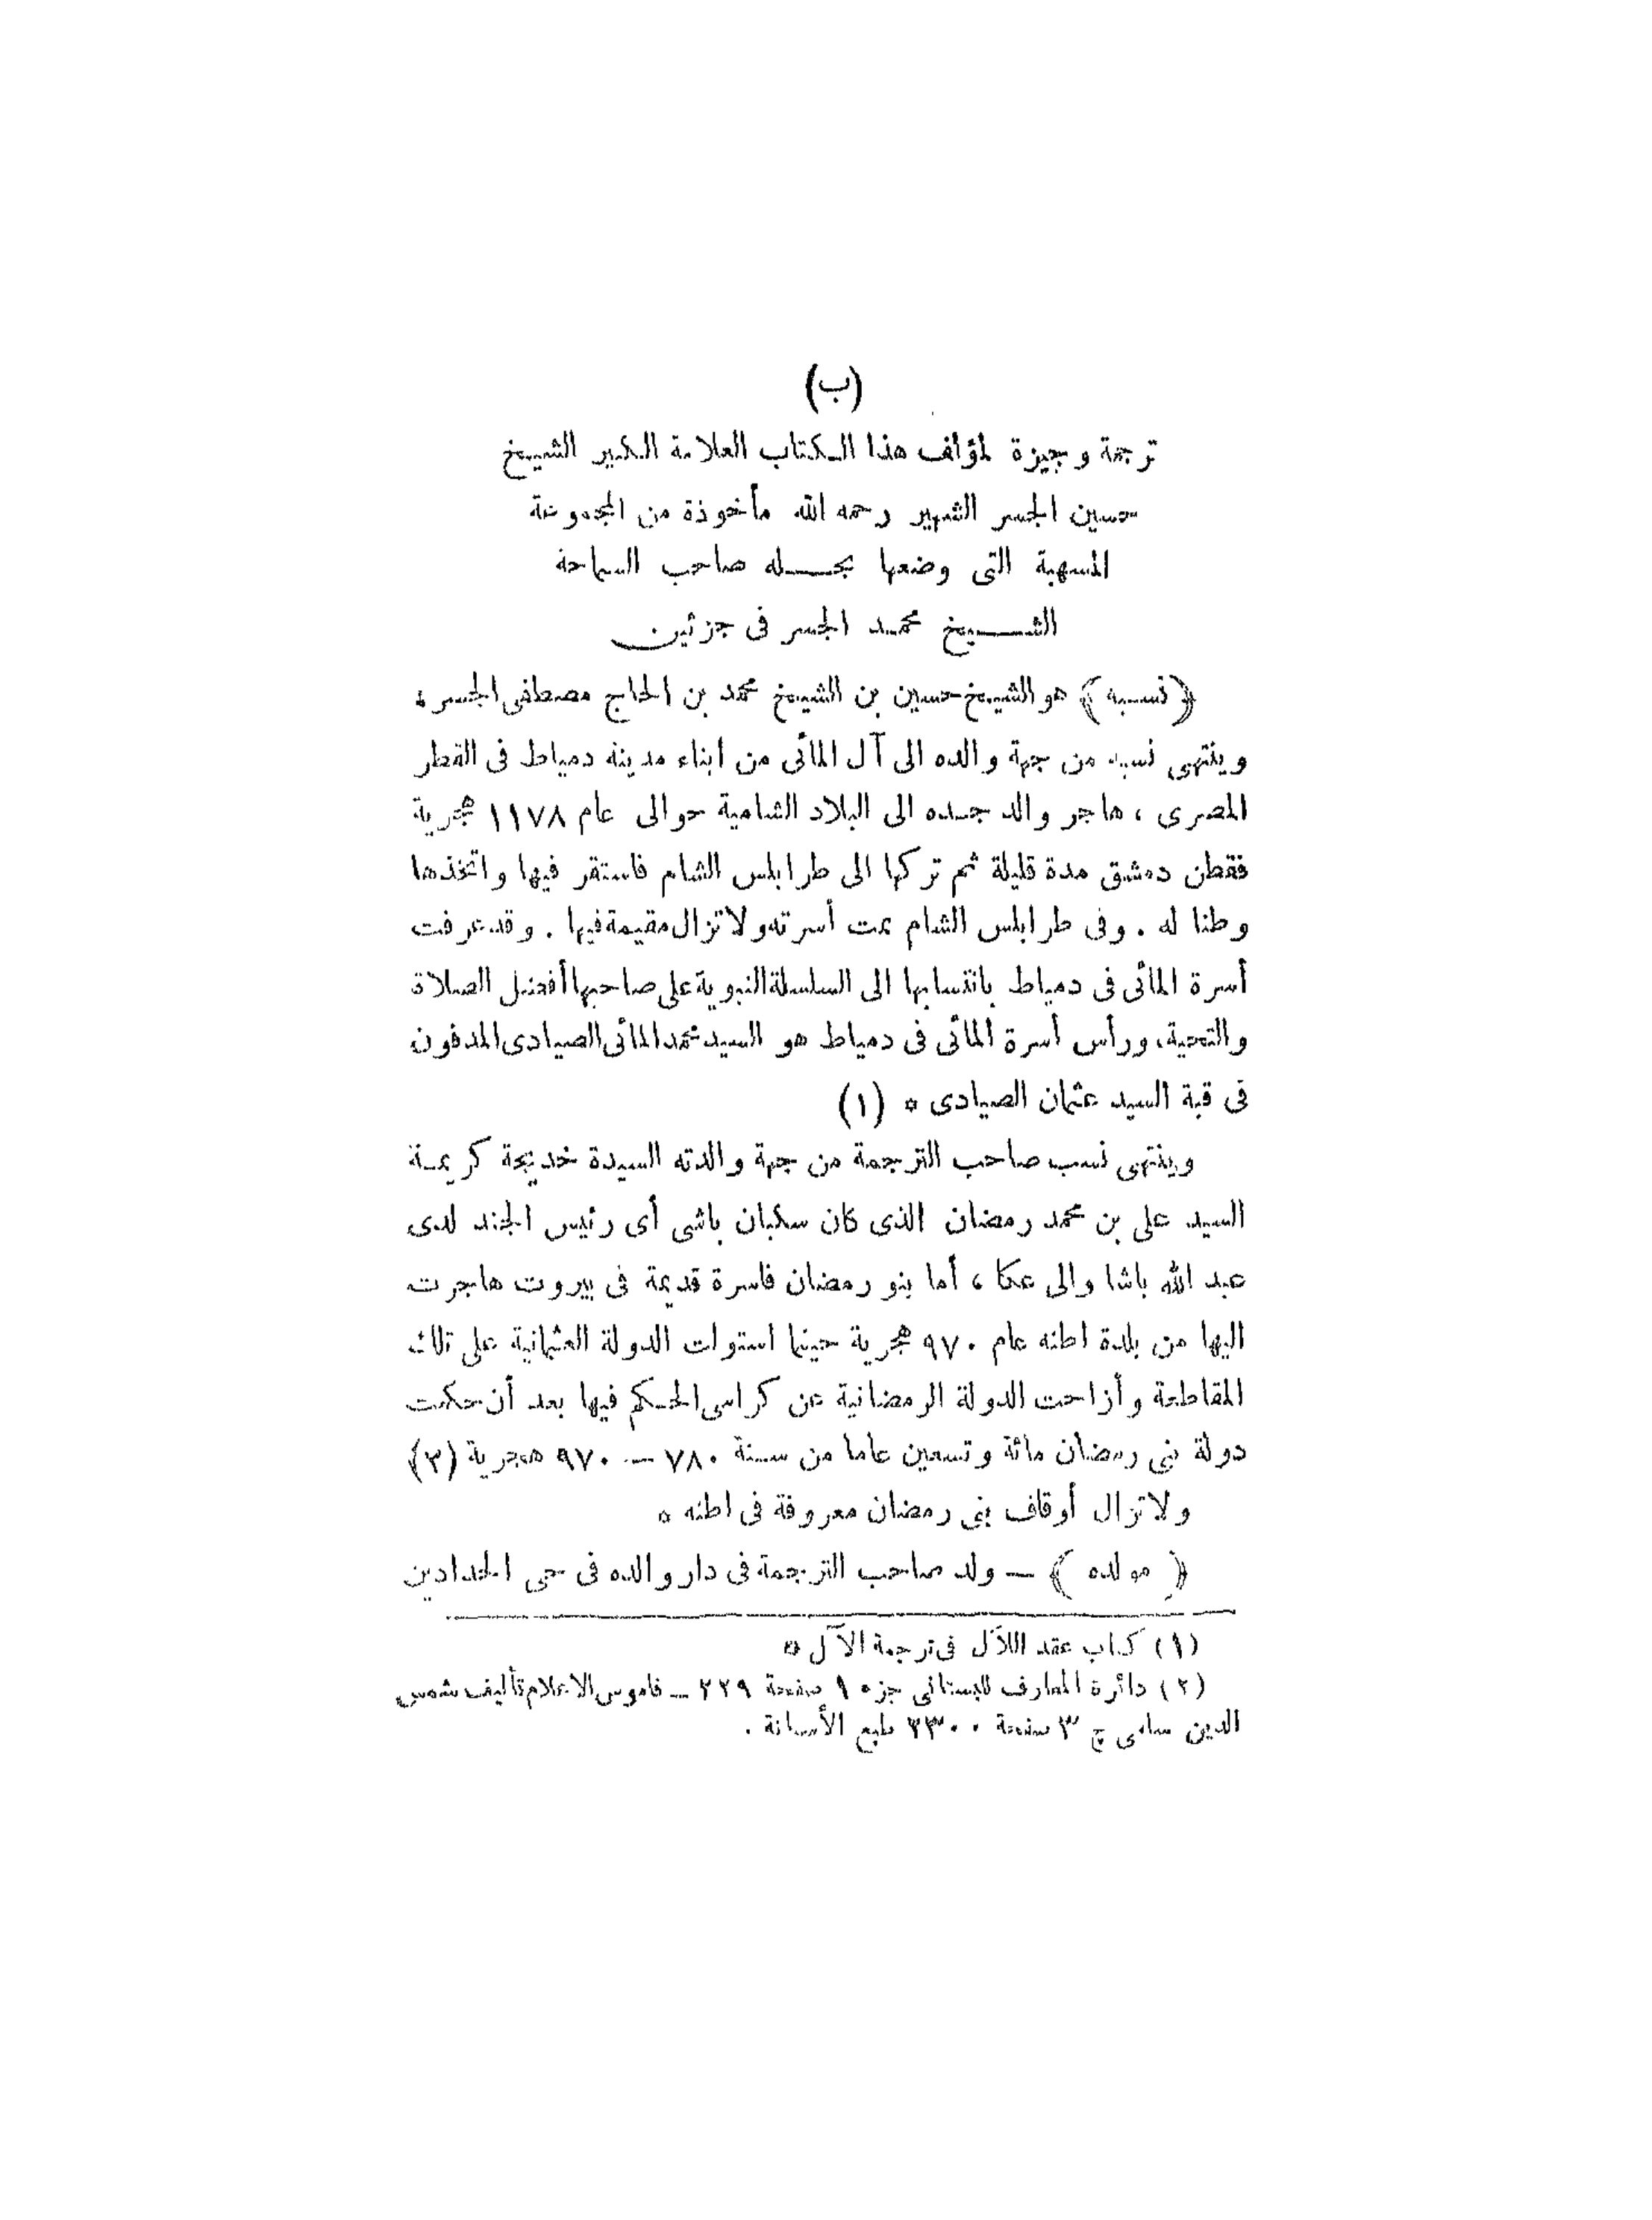 (ب)
ترجمة وجيزة لمؤلف هذا الكتاب العلامة الكبير الشيخ
حسين الجسر الشهير رحمه الله مأخوذة من المجموعة
المسهبة التى وضعها نجـــله صاحب السماحة
الشـــيخ محمد الجسر فى جزئين
﴿نسبه﴾ هو الشيخ حسين بن الشيخ محمد بن الحاج مصطفى الجسر،
وينتهى نسبه من جهة والده الى آل المائى من ابناء مدينة دمياط فى القطر
المصرى ، هاجر والد جده الى البلاد الشامية حوالى عام ١١٧٨ هجرية
فقطن دمشق مدة قليلة ثم تركها الى طرابلس الشام فاستقر فيها واتخذها
وطنا له . وفى طرابلس الشام نمت أسرته ولا تزال مقيمة فيها . وقد عرفت
أسرة المائى فى دمياط بانتسابها الى السلسلة النبوية على صاحبها أفضل الصلاة
والتحية، ورأس أسرة المائى فى دمياط هو السيد محمد المائى الصيادى المدفون
فى قبة السيد عثمان الصيادى ٥ (١)
وينتهى نسب صاحب الترجمة من جهة والدته السيدة خديجة كريمة
السيد على بن محمد رمضان الذى كان سكبان باشى أى رئيس الجند لدى
عبد الله باشا والى عكا ، أما بنو رمضان فاسرة قديمة فى بيروت هاجرت
اليها من بلدة اطنه عام ٩٧٠ هجرية حينما استولت الدولة العثمانية على تلك
المقاطعة وأزاحت الدولة الرمضانية عن كراسى الحكم فيها بعد أن حكمت
دولة بنى رمضان مائة وتسعين عاما من سنة ٧٨٠ — ٩٧٠ هجرية (٢)
ولا تزال أوقاف بنى رمضان معروفة فى اطنه ٥
﴿ مولده ﴾ — ولد صاحب الترجمة فى دار والده فى حى الحدادين
(١) كتاب عقد اللآل فى ترجمة الآل ٥
(٢) دائرة المعارف للبستانى جزء ١ صفحة ٢٢٩ — قاموس الاعلام تأليف شمس
الدين سامى ج ٣ صفحة ٢٣٠٠ طبع الأستانة .